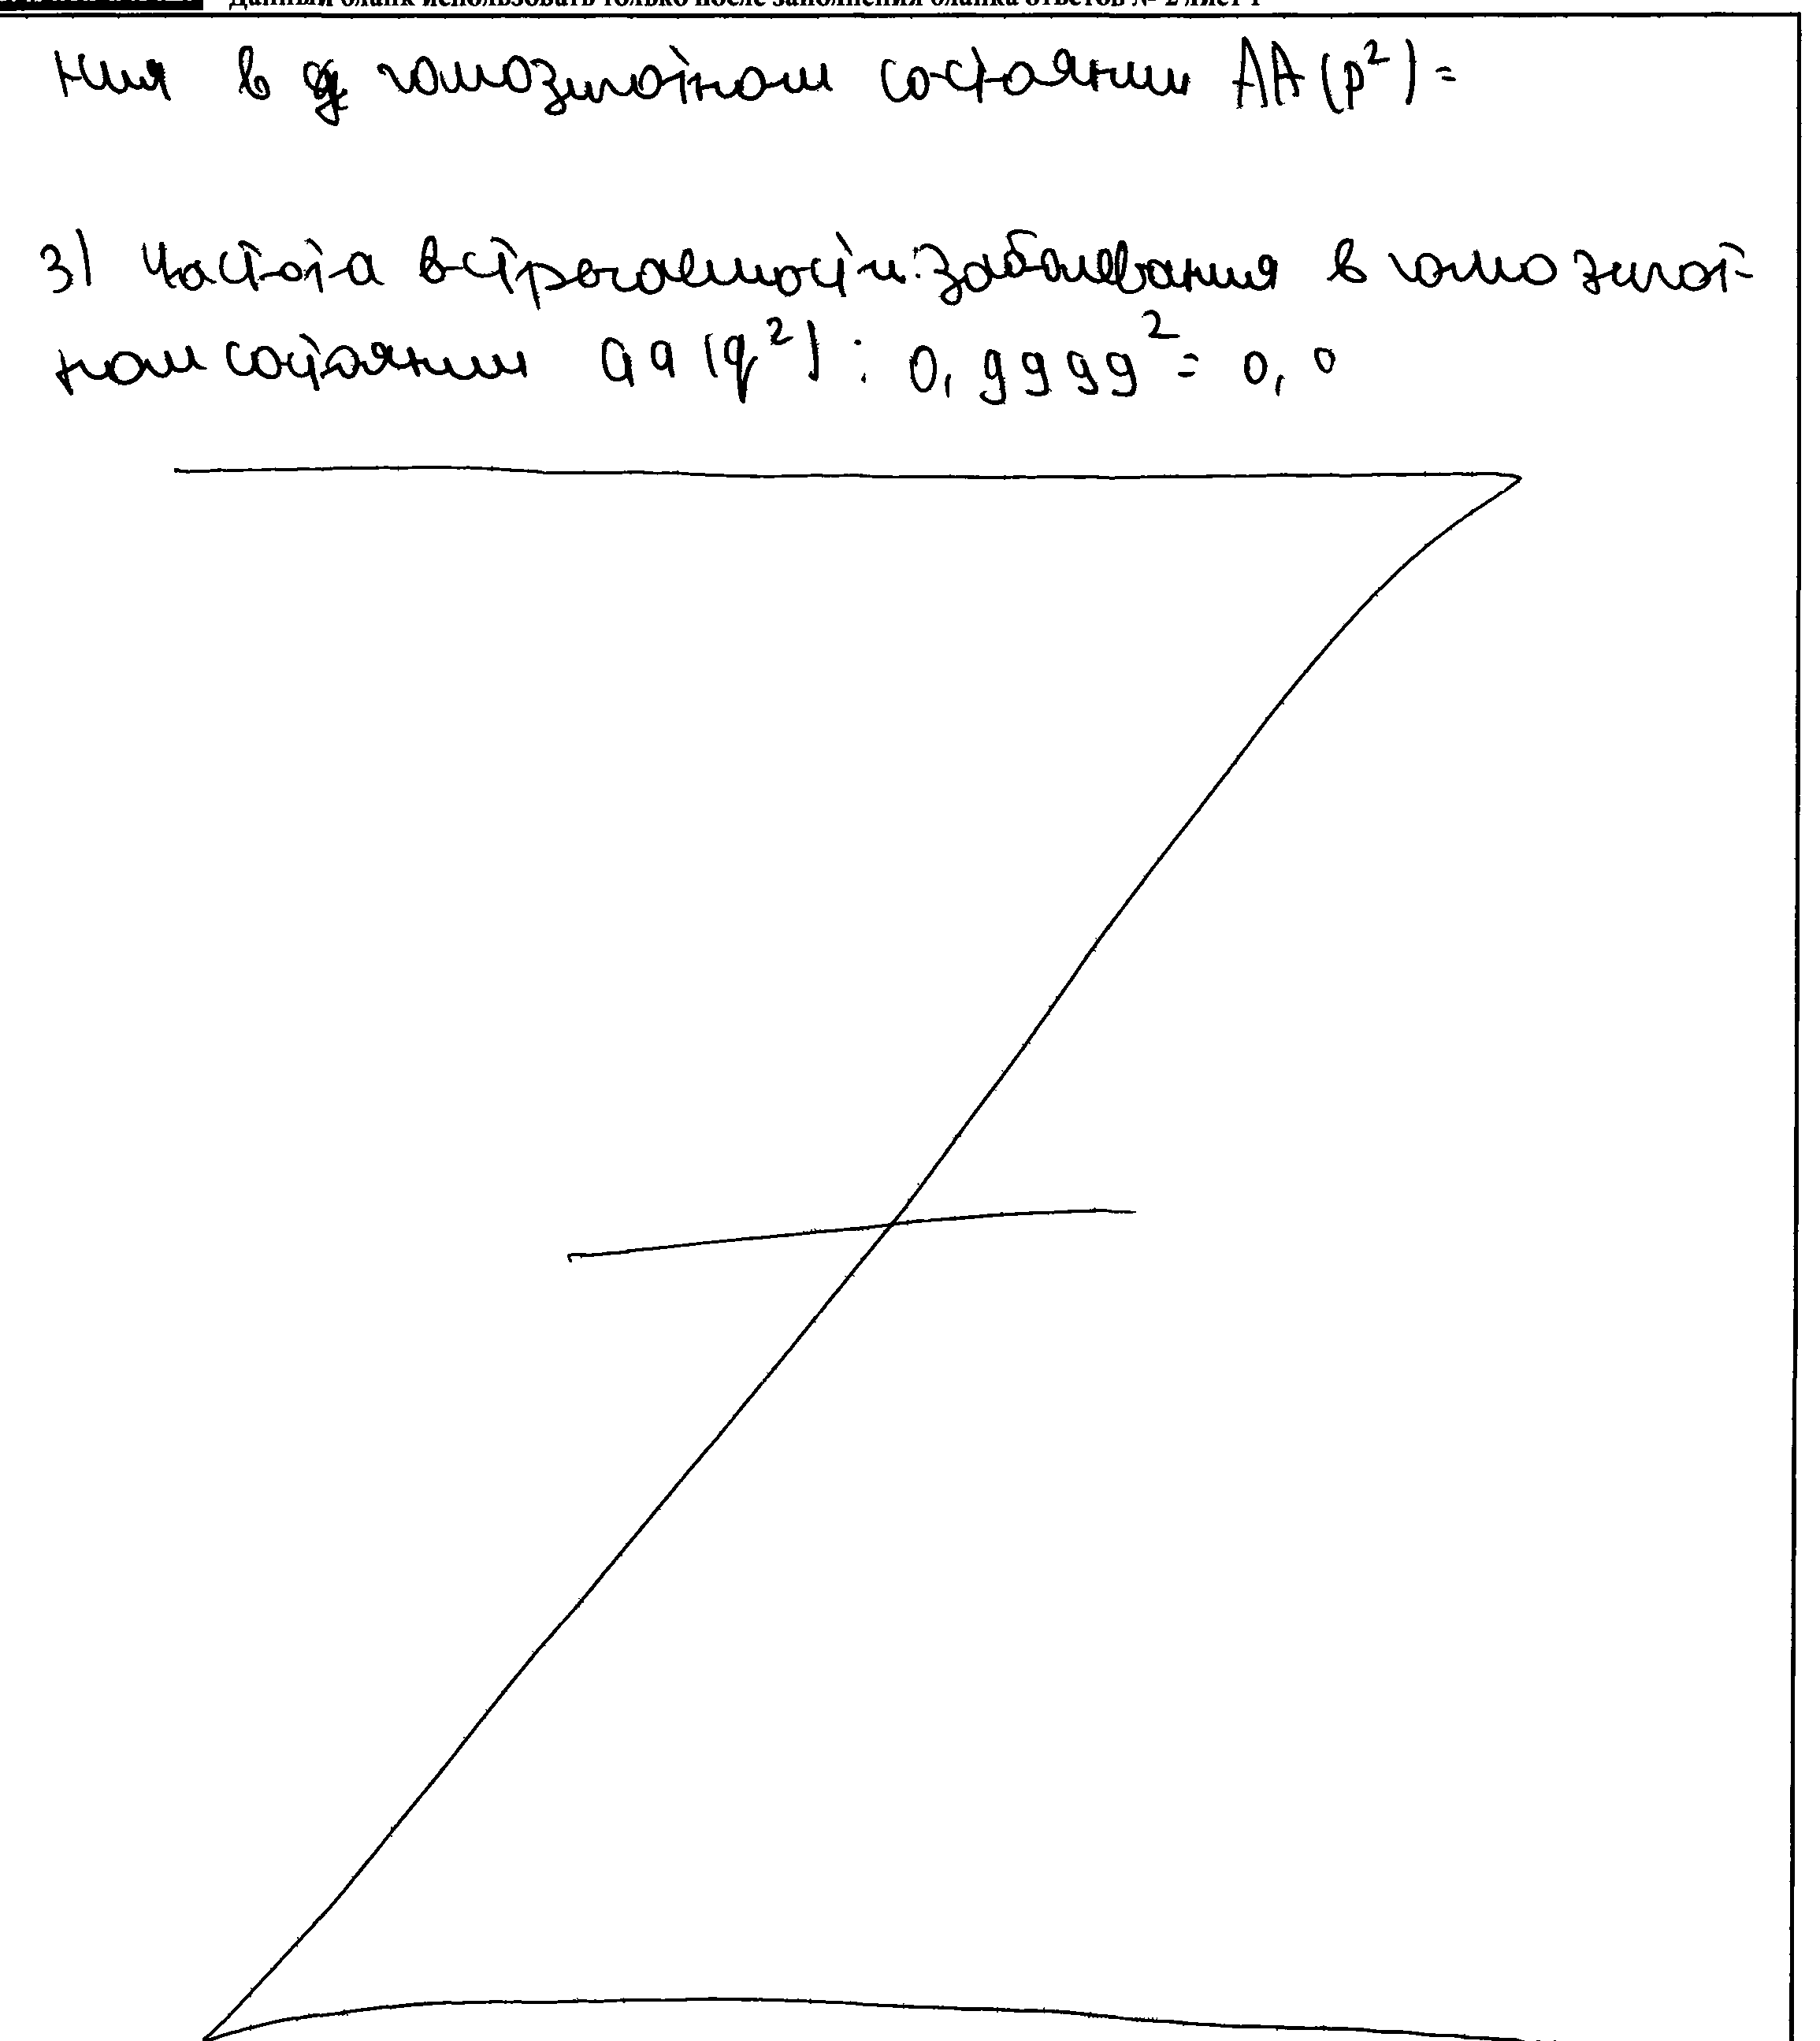 Данный бланк использовать только после заполнения бланка ответов № 2 лист 1
ния в гомозиготном состоянии AA (p²) =
3) Частота встречаемости заболевания в гомозигот-
ном состоянии aa (q²) : 0,9999² = 0,0